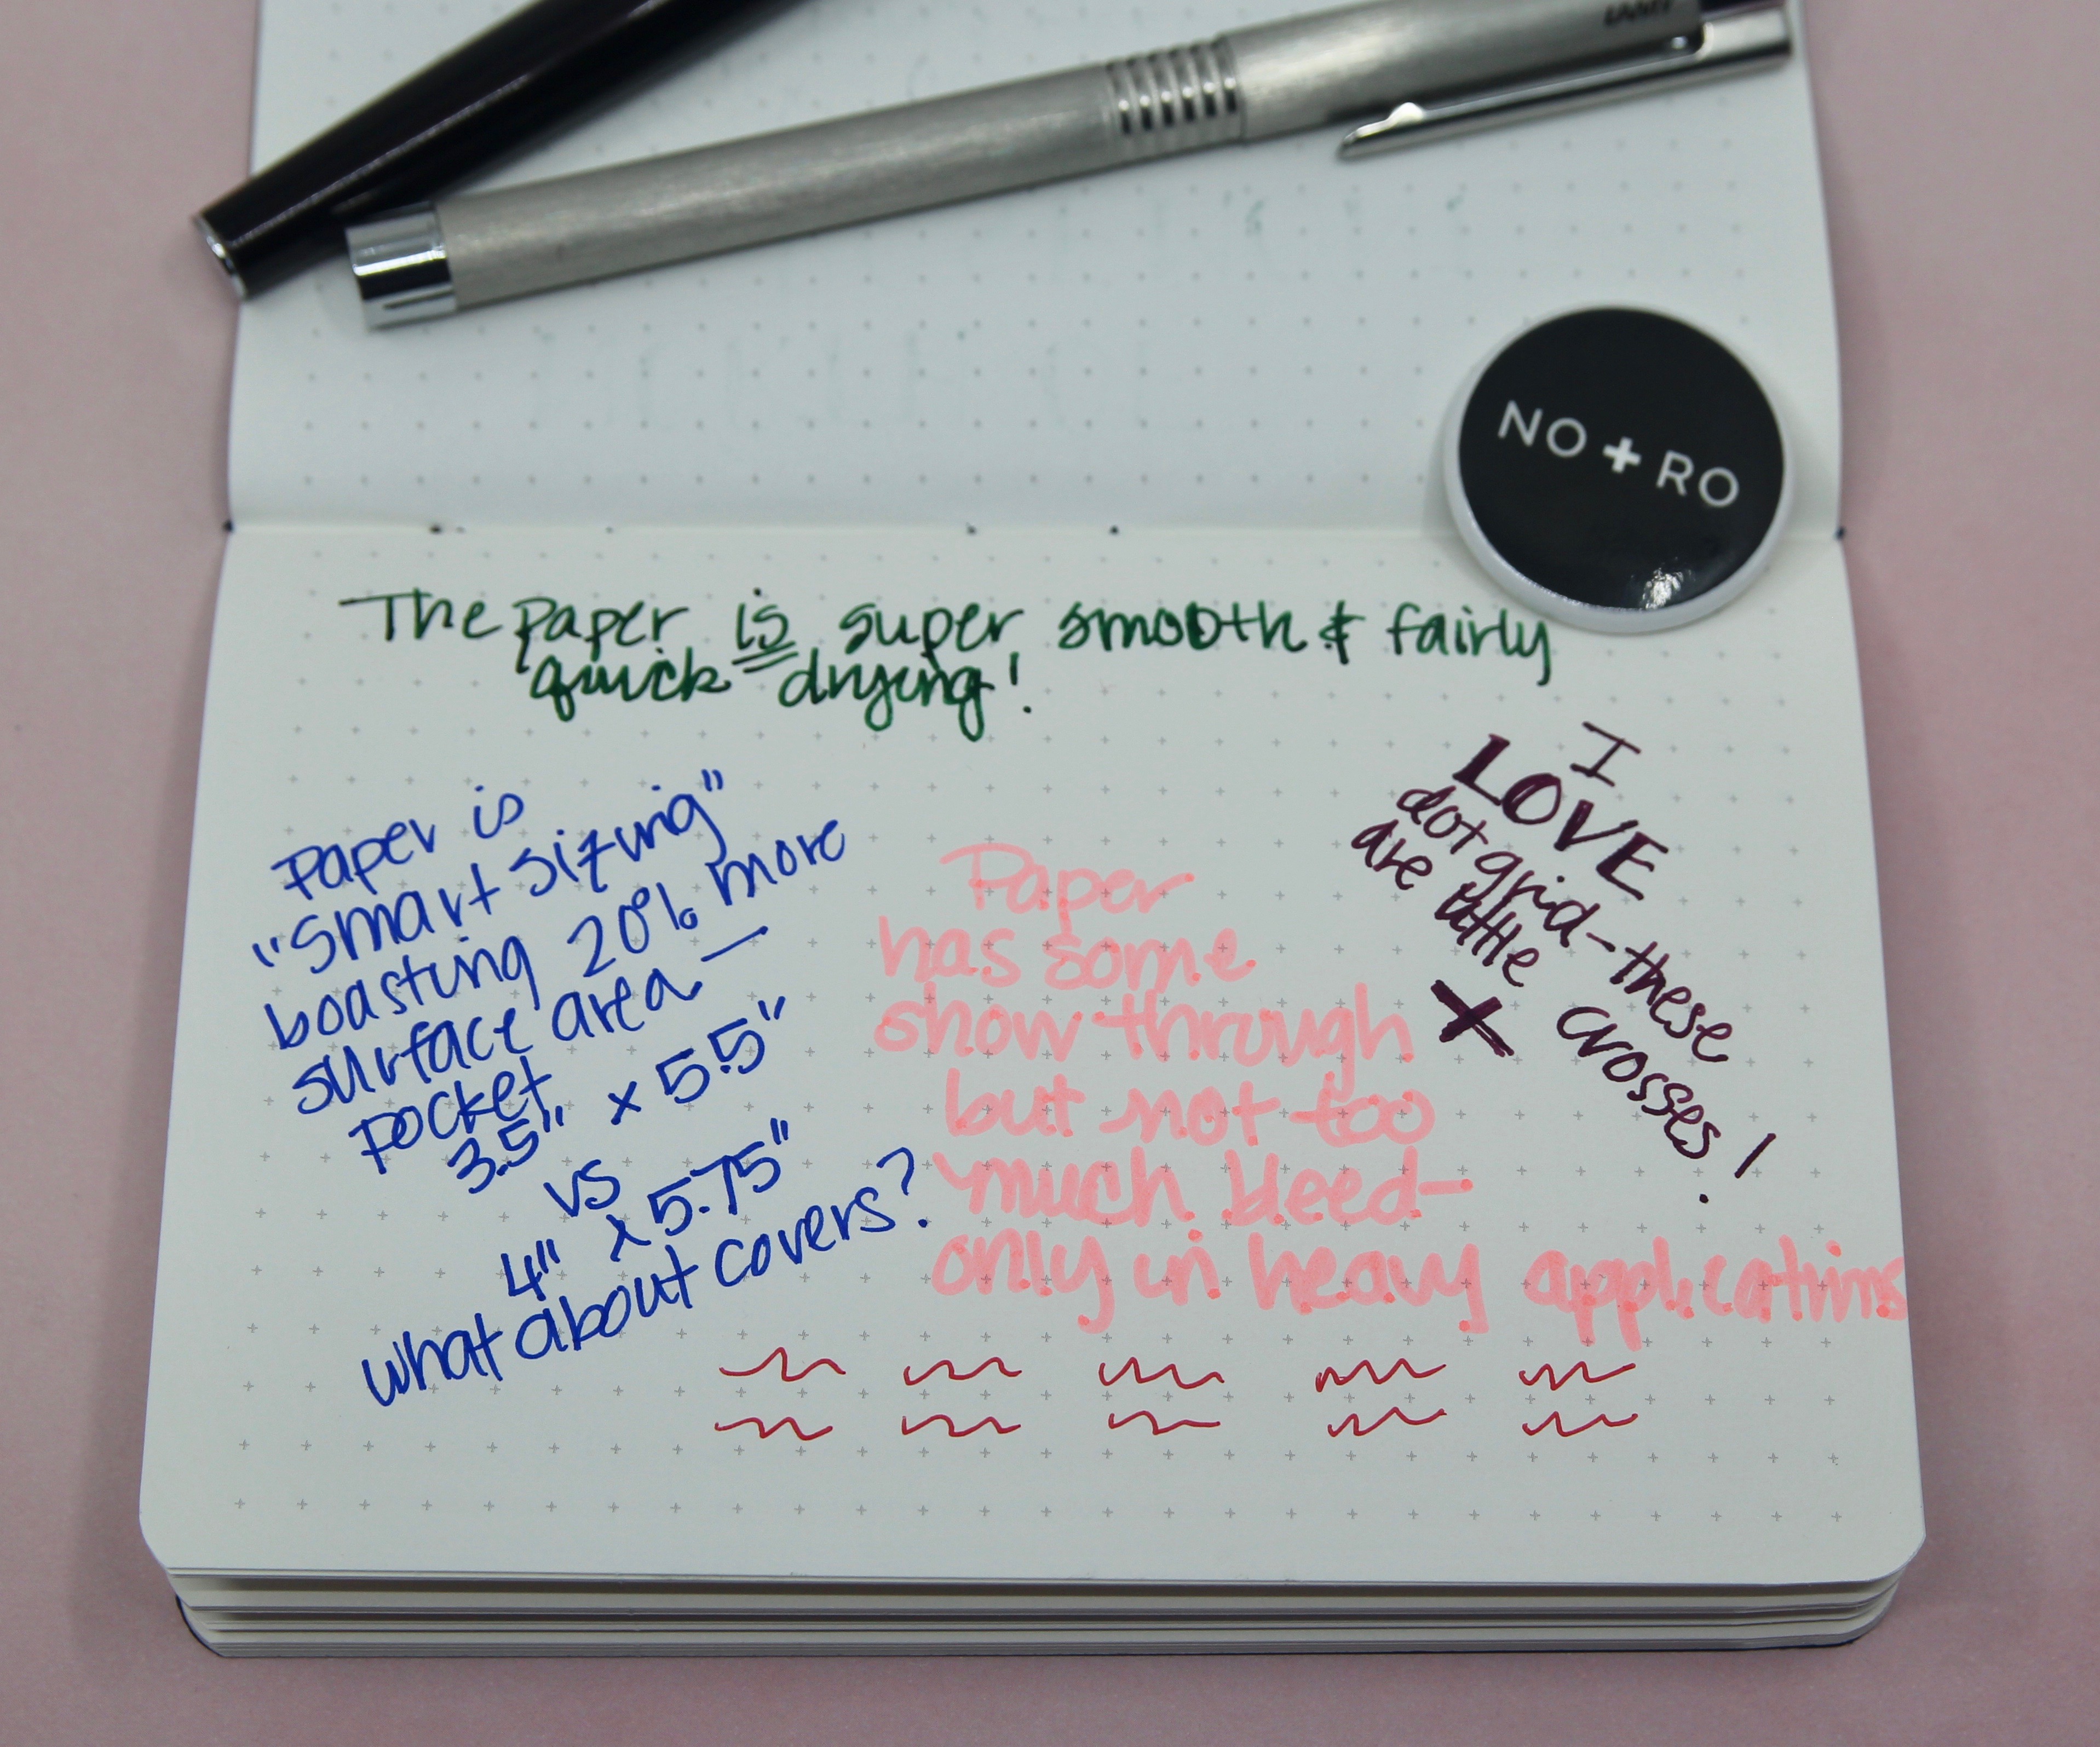 LAMY
NO+RO
The paper is super smooth & fairly
quick drying!
Paper is
"smart sizing"
boasting 20% more
surface area —
pocket
3.5" x 5.5"
vs
4" x 5.75"
what about covers?
Paper
has some
show through
but not too
much bleed—
only in heavy applications
I
LOVE
dot grid - these
are little crosses!
+